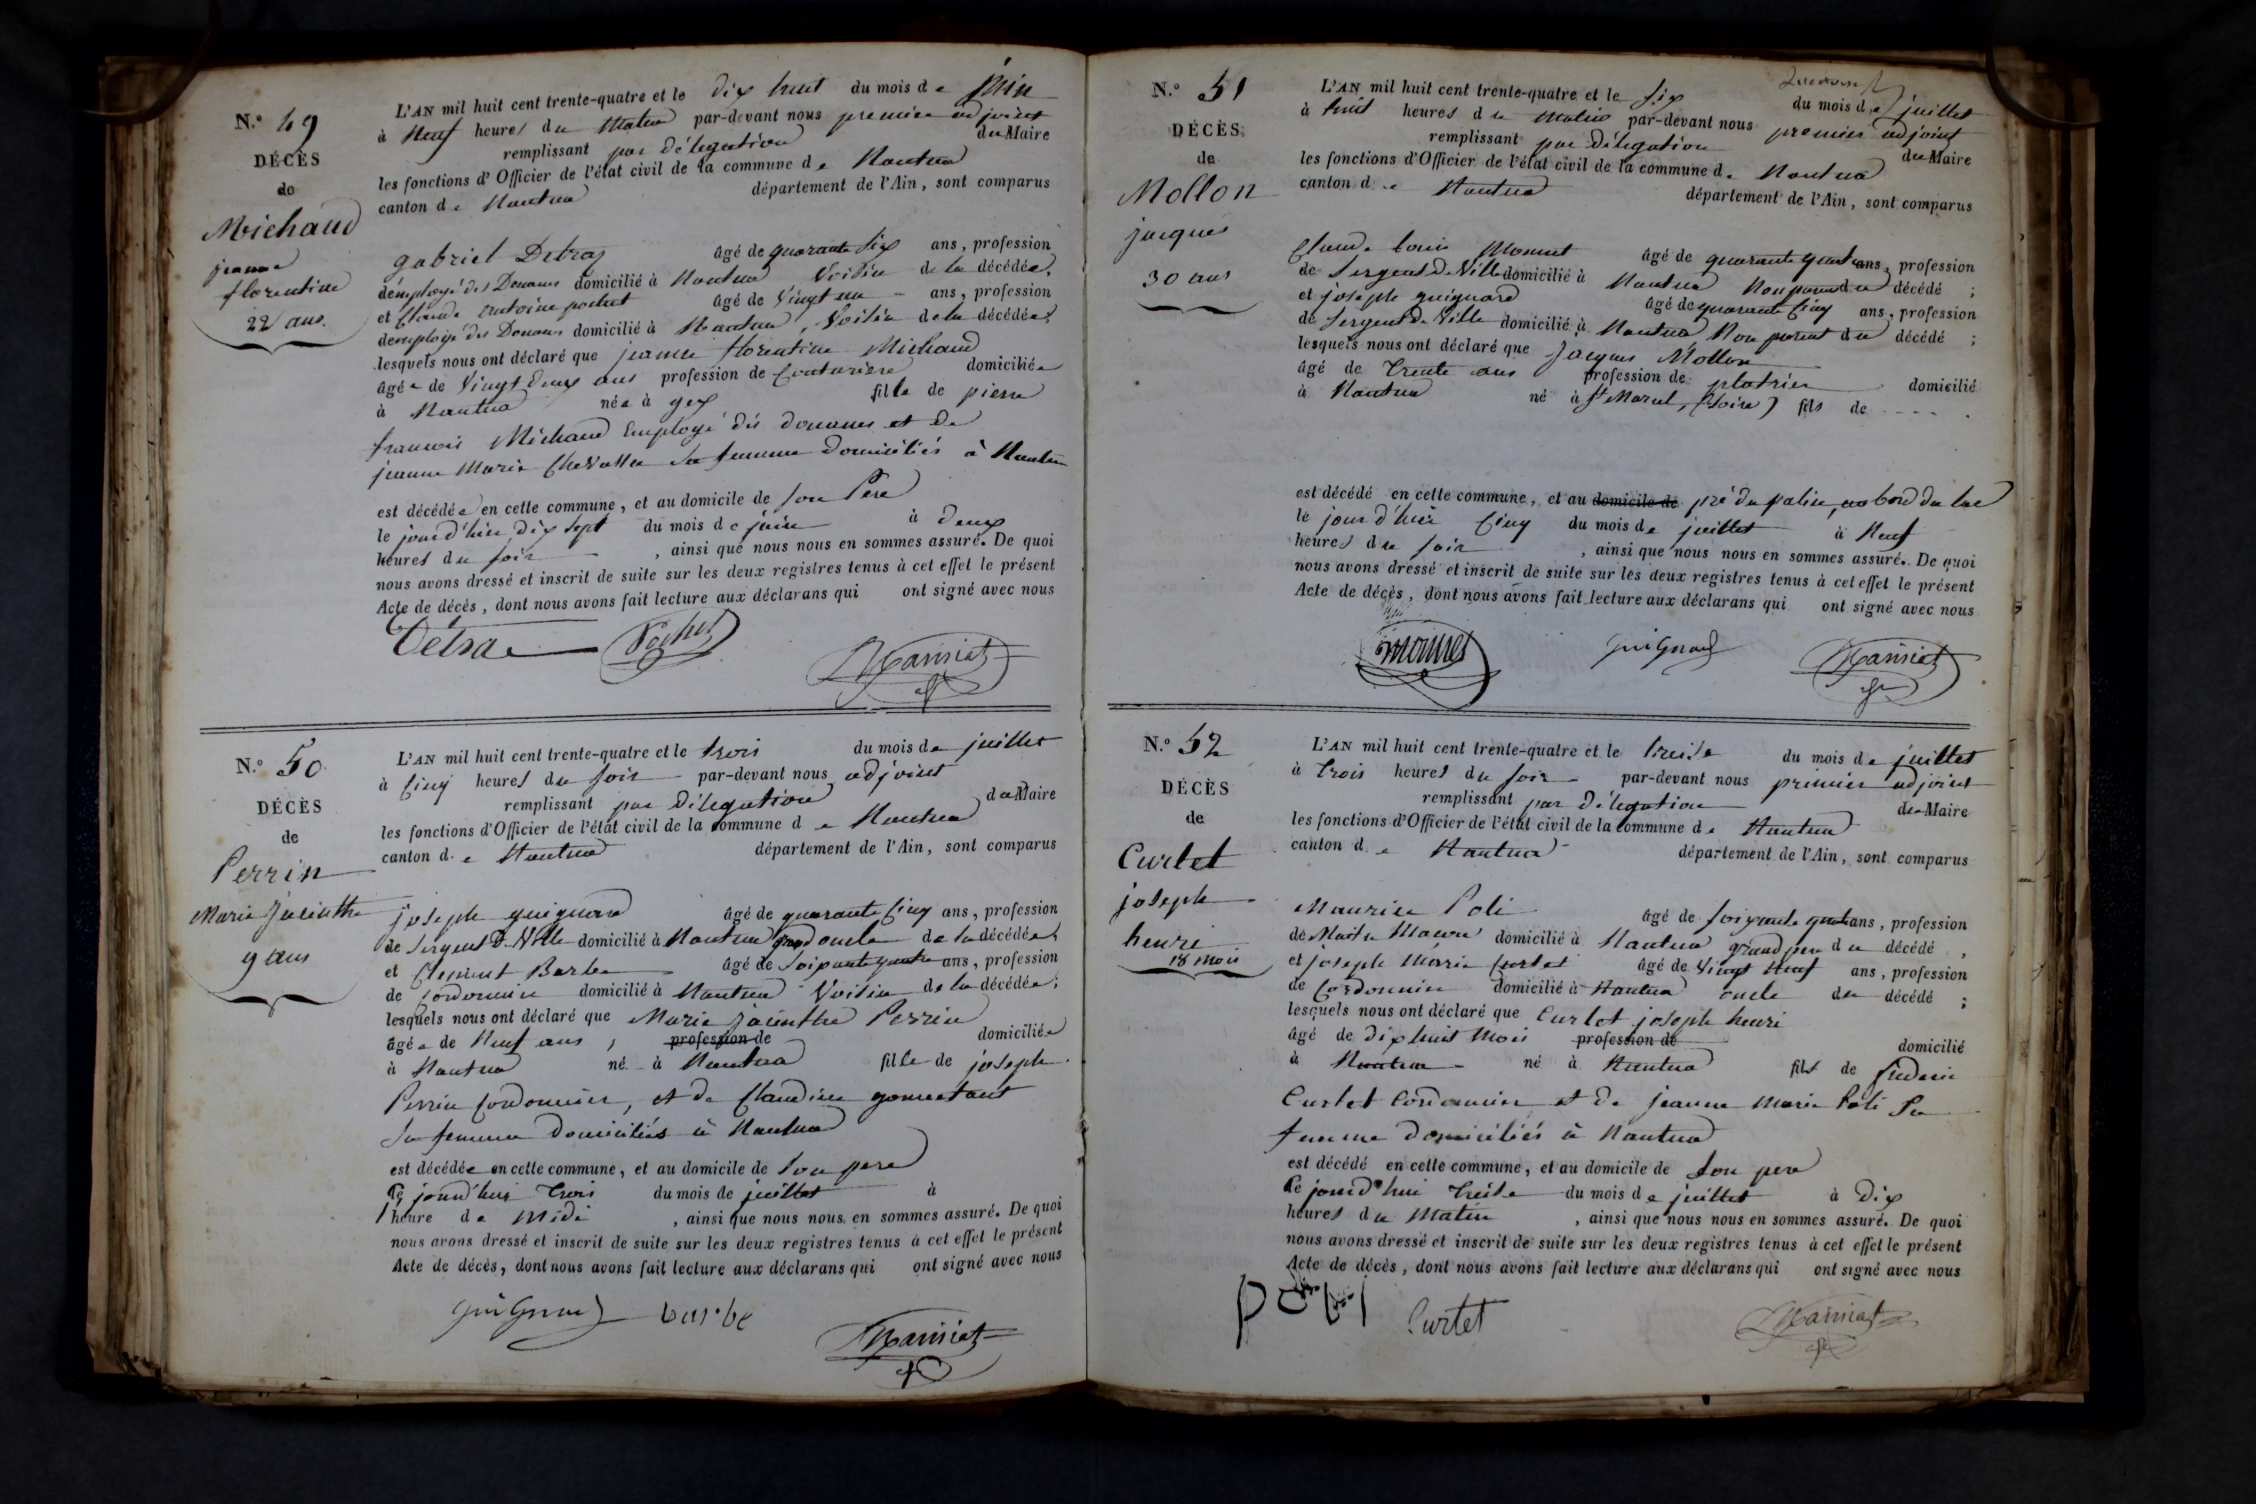 N.º 49
DÉCÈS
de
Michaud
jeanne
florentine
22 ans.
L'AN mil huit cent trente-quatre et le dix huit du mois de juin
à Neuf heures du Matin par-devant nous premier adjoint
remplissant par Délégation du Maire
les fonctions d'Officier de l'état civil de la commune de Nantua
canton de Nantua département de l'Ain, sont comparus
gabriel Detraz âgé de quarante Six ans, profession
d'employé des Douanes domicilié à Nantua Voisin de la décédée,
et Claude Antoine pochet âgé de Vingt un ans, profession
d'employé des Douanes domicilié à Nantua, Voisin de la décédée;
lesquels nous ont déclaré que jeanne florentine Michaud
âgée de Vingt Deux ans profession de Couturière domiciliée
à Nantua née à gex fille de pierre
francois Michaud Employé des douanes et de
jeanne Marie Chevassu sa femme Domiciliés à Nantua
est décédée en cette commune, et au domicile de son Père
le jour d'hier dix Sept du mois de juin à deux
heures du soir, ainsi que nous nous en sommes assuré. De quoi
nous avons dressé et inscrit de suite sur les deux registres tenus à cet effet le présent
Acte de décès, dont nous avons fait lecture aux déclarans qui ont signé avec nous
Détraz Pochet
N.º 50
DÉCÈS
de
Perrin
Marie Jacinthe
9 ans
L'AN mil huit cent trente-quatre et le trois du mois de juillet
à Cinq heures du soir par-devant nous adjoint
remplissant par Délégation du Maire
les fonctions d'Officier de l'état civil de la commune de Nantua
canton de Nantua département de l'Ain, sont comparus
joseph guignard âgé de quarante Cinq ans, profession
de Sergent De Ville domicilié à Nantua grand oncle de la décédée,
et Clement Barbe âgé de Soixante quatre ans, profession
de Cordonnier domicilié à Nantua Voisin de la décédée;
lesquels nous ont déclaré que Marie jacinthe Perrin
âgée de Neuf ans, profession de domiciliée
à Nantua né à Nantua fille de joseph
Perrin Cordonnier, et de Claudine
sa femme Domiciliés à Nantua
est décédée en cette commune, et au domicile de son pere
le jourd'hui trois du mois de juillet à
1 heure de Midi, ainsi que nous nous en sommes assuré. De quoi
nous avons dressé et inscrit de suite sur les deux registres tenus à cet effet le présent
Acte de décès, dont nous avons fait lecture aux déclarans qui ont signé avec nous
guignard barbe
N.º 51
DÉCÈS
de
Mollon
jacques
30 ans
L'AN mil huit cent trente-quatre et le six du mois de juillet
à huit heures du matin par-devant nous premier adjoint
remplissant par Délégation du Maire
les fonctions d'Officier de l'état civil de la commune de Nantua
canton de Nantua département de l'Ain, sont comparus
Claude Louis âgé de quarante quatre ans, profession
de Sergent De Ville domicilié à Nantua Non parent du décédé;
et joseph guignard âgé de quarante Cinq ans, profession
de Sergent De Ville domicilié à Nantua Non parent du décédé;
lesquels nous ont déclaré que Jacques Mollon
âgé de Trente ans profession de platrier domicilié
à Nantua né à St Marcel, (Loire) fils de - - - -
est décédé en cette commune, et au domicile de pré du palin, au bord du lac
le jour d'hier Cinq du mois de juillet à Neuf
heures du soir, ainsi que nous nous en sommes assuré. De quoi
nous avons dressé et inscrit de suite sur les deux registres tenus à cet effet le présent
Acte de décès, dont nous avons fait lecture aux déclarans qui ont signé avec nous
guignard
N.º 52
DÉCÈS
de
Curtet
joseph
henri
18 mois
L'AN mil huit cent trente-quatre et le treize du mois de juillet
à Trois heures du soir par-devant nous premier adjoint
remplissant par Délégation du Maire
les fonctions d'Officier de l'état civil de la commune de Nantua
canton de Nantua département de l'Ain, sont comparus
Maurice Poli âgé de soixante quatre ans, profession
de Maitre Macon domicilié à Nantua grand pere du décédé,
et joseph Marie Curtet âgé de Vingt Neuf ans, profession
de Cordonnier domicilié à Nantua oncle du décédé;
lesquels nous ont déclaré que Curtet joseph henri
âgé de Dix huit Mois profession de domicilié
à Nantua né à Nantua fils de frederic
Curtet Cordonnier et de jeanne Marie Poli sa
femme domiciliés à Nantua
est décédé en cette commune, et au domicile de son pere
le jourd'hui treize du mois de juillet à Dix
heures du Matin, ainsi que nous nous en sommes assuré. De quoi
nous avons dressé et inscrit de suite sur les deux registres tenus à cet effet le présent
Acte de décès, dont nous avons fait lecture aux déclarans qui ont signé avec nous
Curtet